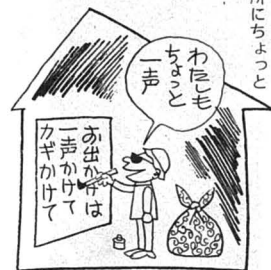 所にちょっと
わたしも
ちょっと
一声
お出かけは
一声かけて
カギかけて